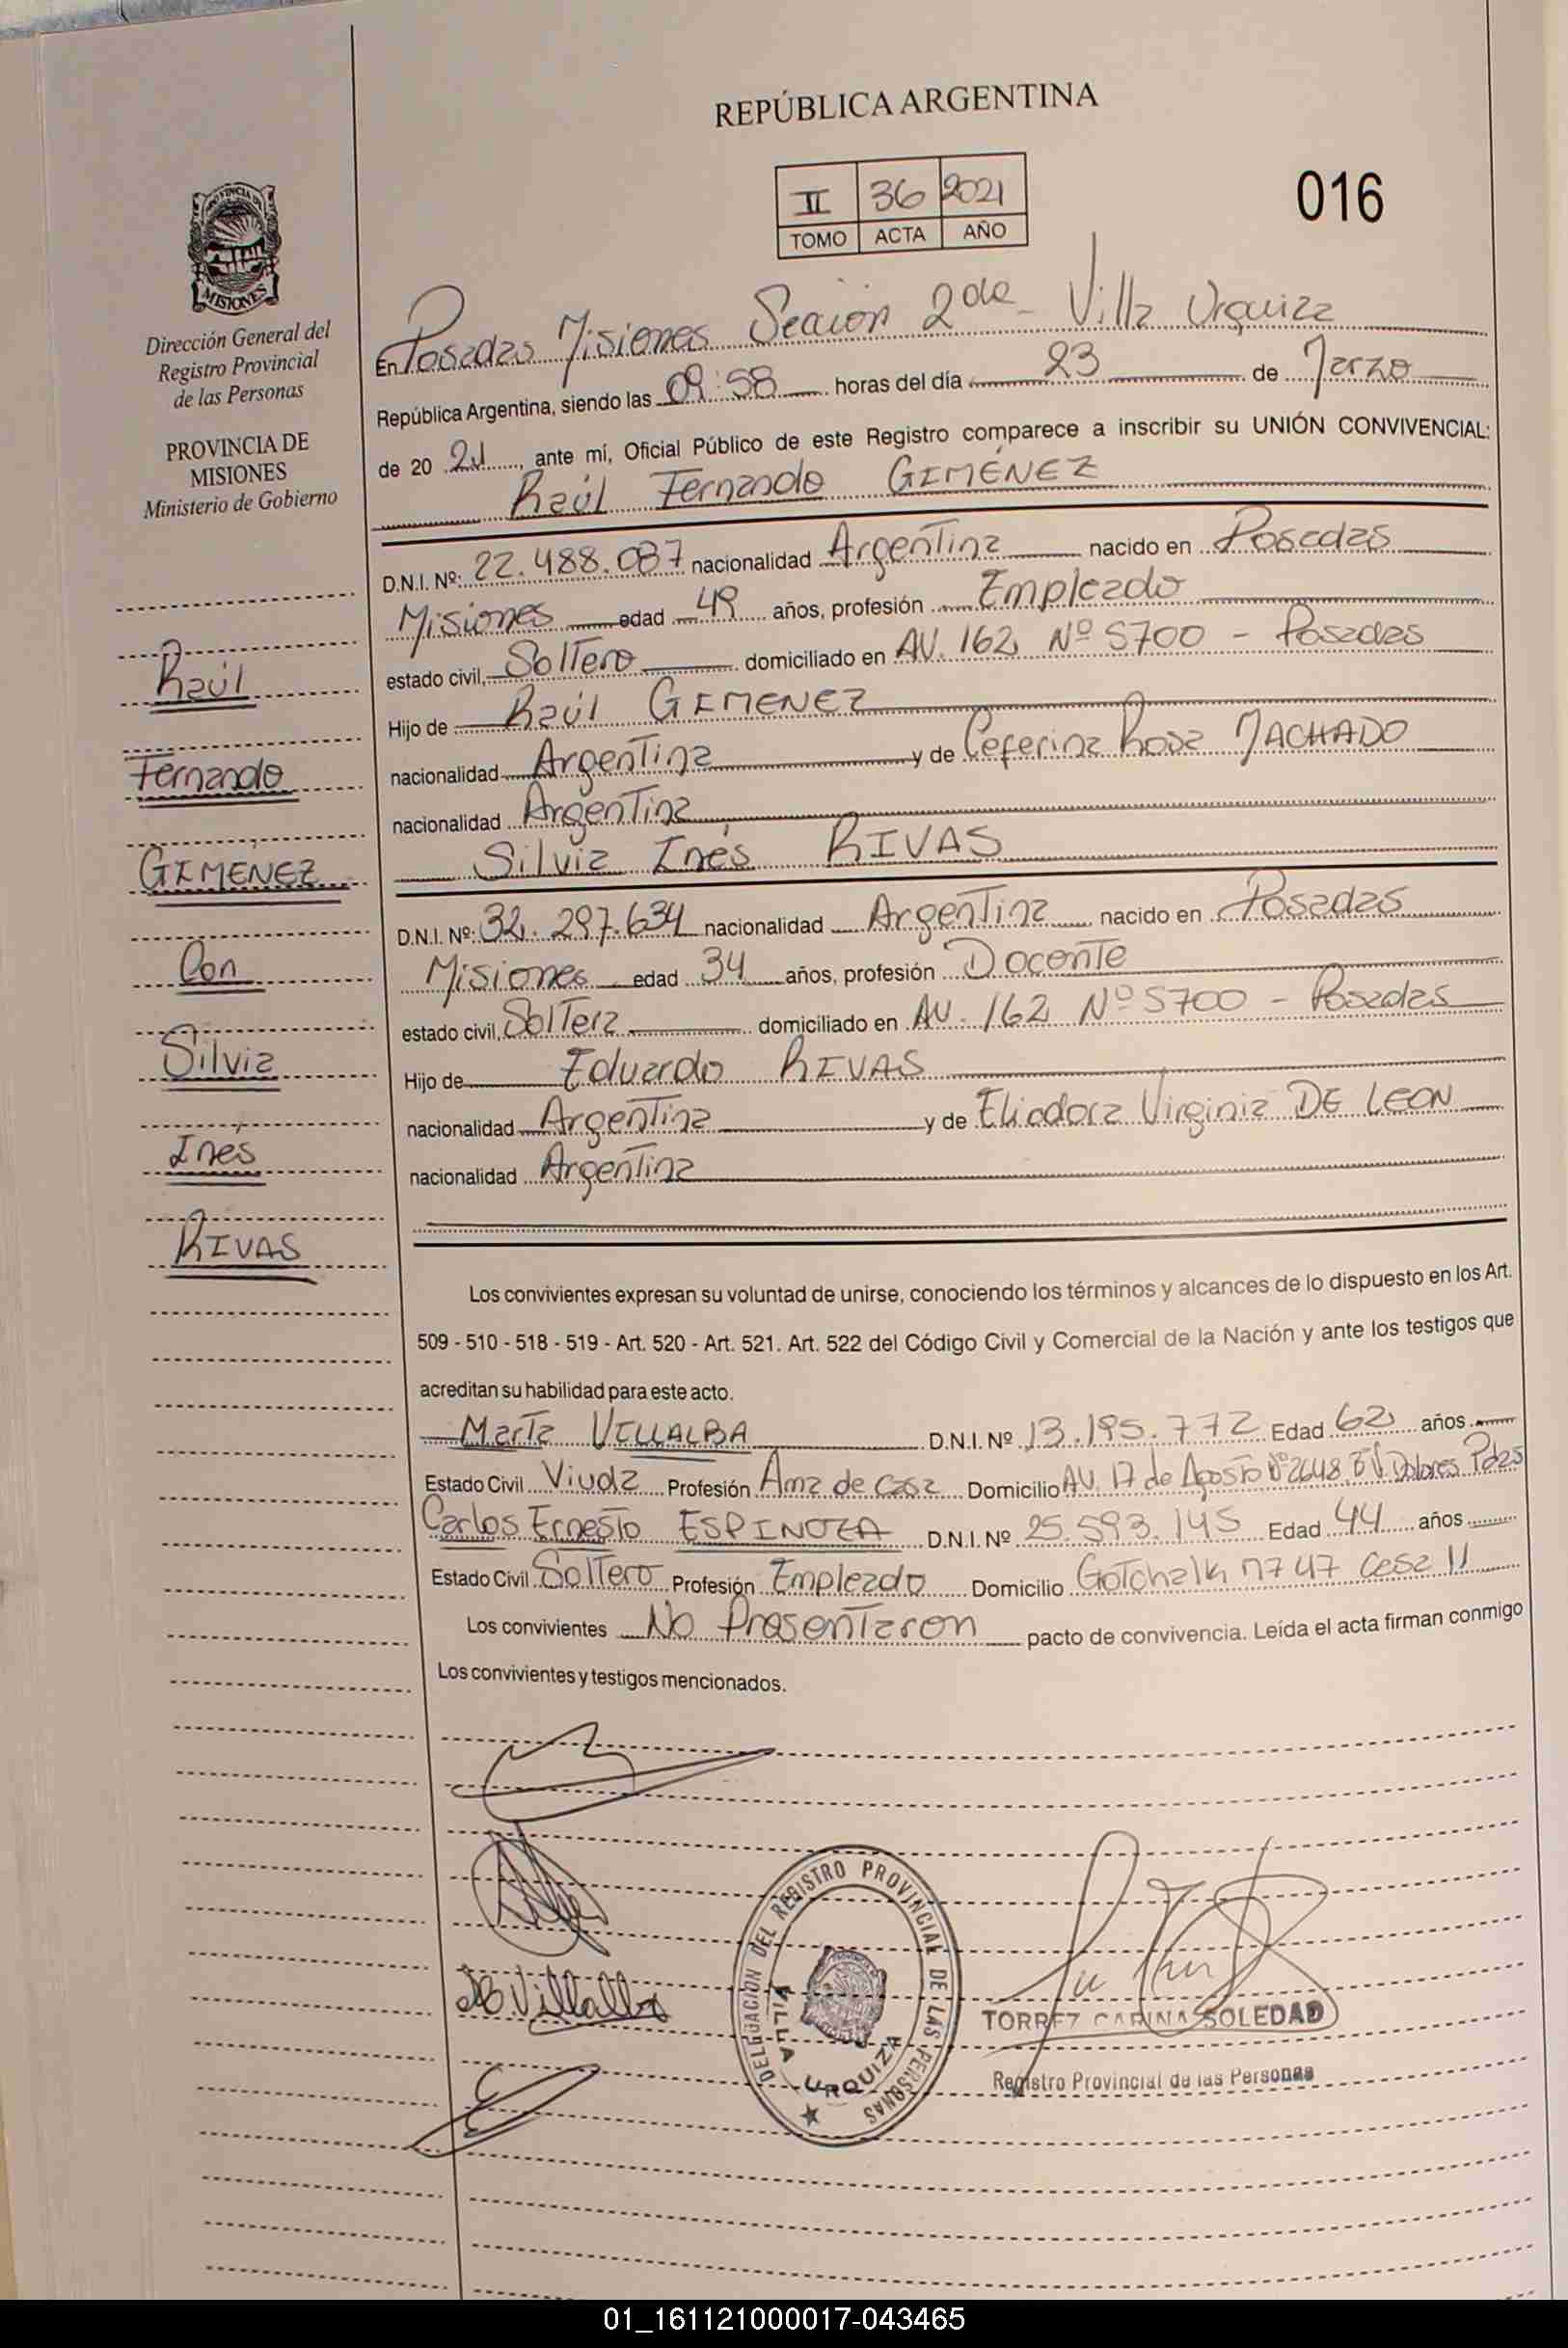 REPÚBLICA ARGENTINA
II 36 2021
TOMO ACTA AÑO
016
PROVINCIA DE
MISIONES
Dirección General del
Registro Provincial
de las Personas
PROVINCIA DE
MISIONES
Ministerio de Gobierno
Raúl
Fernando
GIMÉNEZ
Con
Silvia
Inés
RIVAS
En Posadas Misiones Sección 2da - Villa Urquiza
República Argentina, siendo las 09:58 horas del día 23 de Marzo
de 20 21, ante mí, Oficial Público de este Registro comparece a inscribir su UNIÓN CONVIVENCIAL:
Raúl Fernando GIMÉNEZ
D.N.I. Nº: 22.488.087 nacionalidad Argentina nacido en Posadas
Misiones edad 49 años, profesión Empleado
estado civil, Soltero domiciliado en AV. 162 Nº 5700 - Posadas
Hijo de Raúl GIMENEZ
nacionalidad Argentina y de Ceferina Rosa MACHADO
nacionalidad Argentina
Silvia Inés RIVAS
D.N.I. Nº: 32.297.634 nacionalidad Argentina nacido en Posadas
Misiones edad 34 años, profesión Docente
estado civil, Soltera domiciliado en AV. 162 Nº 5700 - Posadas
Hijo de Eduardo RIVAS
nacionalidad Argentina y de Eliodora Virginia DE LEON
nacionalidad Argentina
Los convivientes expresan su voluntad de unirse, conociendo los términos y alcances de lo dispuesto en los Art.
509 - 510 - 518 - 519 - Art. 520 - Art. 521. Art. 522 del Código Civil y Comercial de la Nación y ante los testigos que
acreditan su habilidad para este acto.
Marta VILLALBA D.N.I. Nº 13.195.772 Edad 62 años
Estado Civil Viuda Profesión Ama de casa Domicilio AV. 17 de Agosto Nº 2648 Bº V. Dolores Pdas
Carlos Ernesto ESPINOZA D.N.I. Nº 25.593.145 Edad 44 años
Estado Civil Soltero Profesión Empleado Domicilio Gotchalk 7747 casa 11
Los convivientes No Presentaron pacto de convivencia. Leída el acta firman conmigo
Los convivientes y testigos mencionados.
Villalba
DELEGACION DEL REGISTRO PROVINCIAL DE LAS PERSONAS
VILLA URQUIZA
TORREZ CARINA SOLEDAD
Registro Provincial de las Personas
01_161121000017-043465